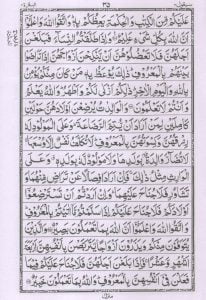 ٣٥
عَلَيْكُمْ مِّنَ الْكِتٰبِ وَالْحِكْمَةِ يَعِظُكُمْ بِهٖ وَاتَّقُوا اللّٰهَ وَاعْلَمُوْٓا
اَنَّ اللّٰهَ بِكُلِّ شَيْءٍ عَلِيْمٌ وَاِذَا طَلَّقْتُمُ النِّسَآءَ فَبَلَغْنَ
اَجَلَهُنَّ فَلَا تَعْضُلُوْهُنَّ اَنْ يَّنْكِحْنَ اَزْوَاجَهُنَّ اِذَا تَرَاضَوْا
بَيْنَهُمْ بِالْمَعْرُوْفِ ذٰلِكَ يُوْعَظُ بِهٖ مَنْ كَانَ مِنْكُمْ يُؤْمِنُ
بِاللّٰهِ وَالْيَوْمِ الْاٰخِرِ ذٰلِكُمْ اَزْكٰى لَكُمْ وَاَطْهَرُ وَاللّٰهُ يَعْلَمُ
وَاَنْتُمْ لَا تَعْلَمُوْنَ وَالْوَالِدٰتُ يُرْضِعْنَ اَوْلَادَهُنَّ حَوْلَيْنِ
كَامِلَيْنِ لِمَنْ اَرَادَ اَنْ يُّتِمَّ الرَّضَاعَةَ وَعَلَى الْمَوْلُوْدِ لَهٗ
رِزْقُهُنَّ وَكِسْوَتُهُنَّ بِالْمَعْرُوْفِ لَا تُكَلَّفُ نَفْسٌ اِلَّا وُسْعَهَا لَا
تُضَآرَّ وَالِدَةٌۢ بِوَلَدِهَا وَلَا مَوْلُوْدٌ لَّهٗ بِوَلَدِهٖ وَعَلَى
الْوَارِثِ مِثْلُ ذٰلِكَ فَاِنْ اَرَادَا فِصَالًا عَنْ تَرَاضٍ مِّنْهُمَا وَ
تَشَاوُرٍ فَلَا جُنَاحَ عَلَيْهِمَا وَاِنْ اَرَدْتُّمْ اَنْ تَسْتَرْضِعُوْٓا
اَوْلَادَكُمْ فَلَا جُنَاحَ عَلَيْكُمْ اِذَا سَلَّمْتُمْ مَّآ اٰتَيْتُمْ بِالْمَعْرُوْفِ
وَاتَّقُوا اللّٰهَ وَاعْلَمُوْٓا اَنَّ اللّٰهَ بِمَا تَعْمَلُوْنَ بَصِيْرٌ وَالَّذِيْنَ
يُتَوَفَّوْنَ مِنْكُمْ وَيَذَرُوْنَ اَزْوَاجًا يَّتَرَبَّصْنَ بِاَنْفُسِهِنَّ اَرْبَعَةَ
اَشْهُرٍ وَّعَشْرًا فَاِذَا بَلَغْنَ اَجَلَهُنَّ فَلَا جُنَاحَ عَلَيْكُمْ فِيْمَا
فَعَلْنَ فِيْٓ اَنْفُسِهِنَّ بِالْمَعْرُوْفِ وَاللّٰهُ بِمَا تَعْمَلُوْنَ خَبِيْرٌ